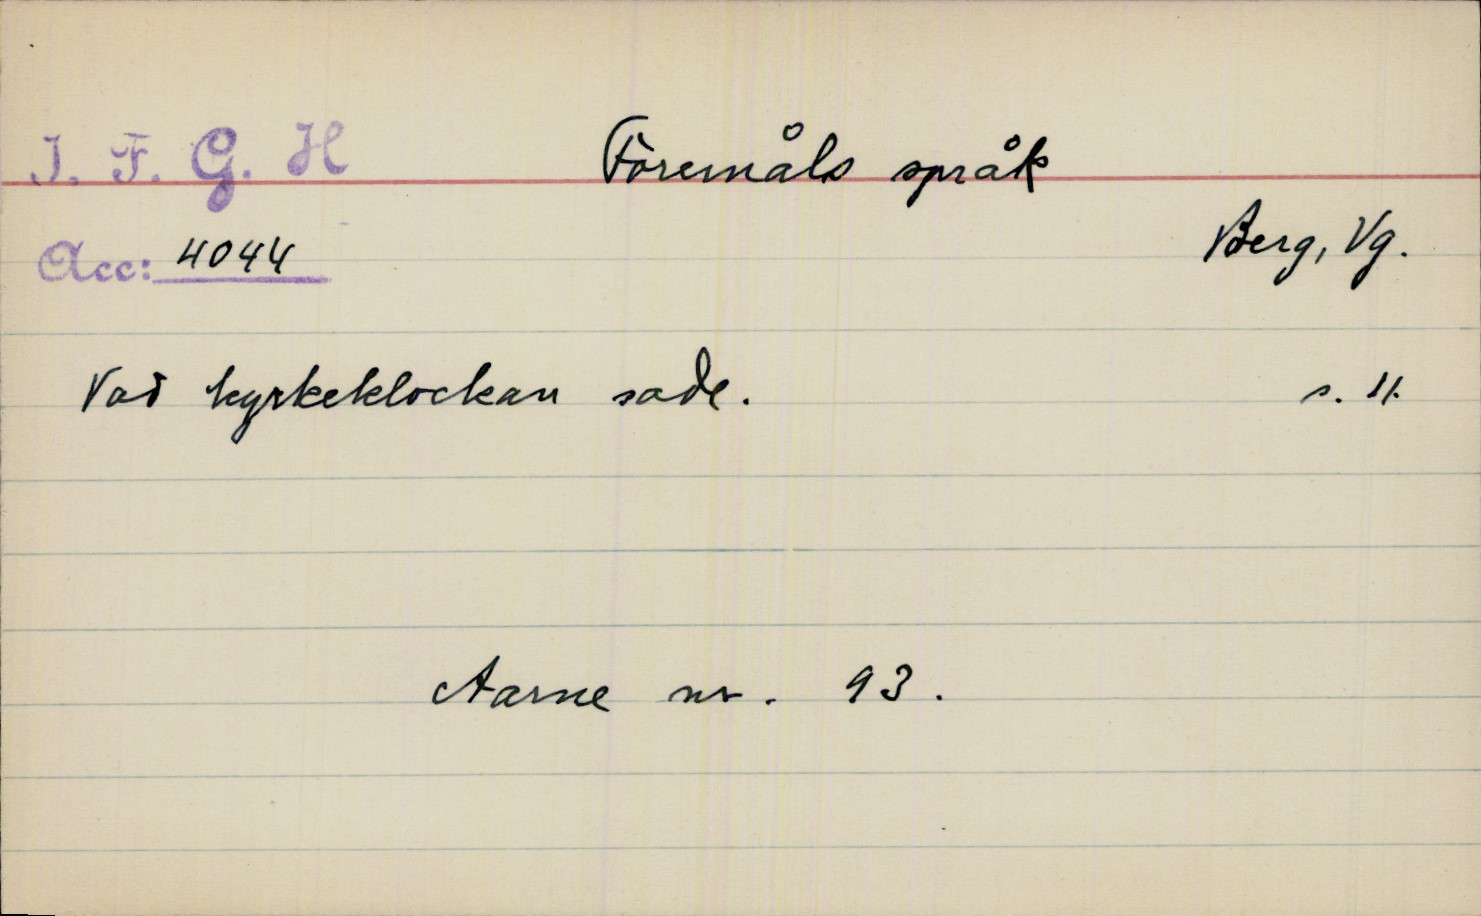 I. F. G. H
Föremåls språk
Acc: 4044
Berg, Vg.
Vad kyrkeklockan sade.
s. 11.
Aarne nr. 93.